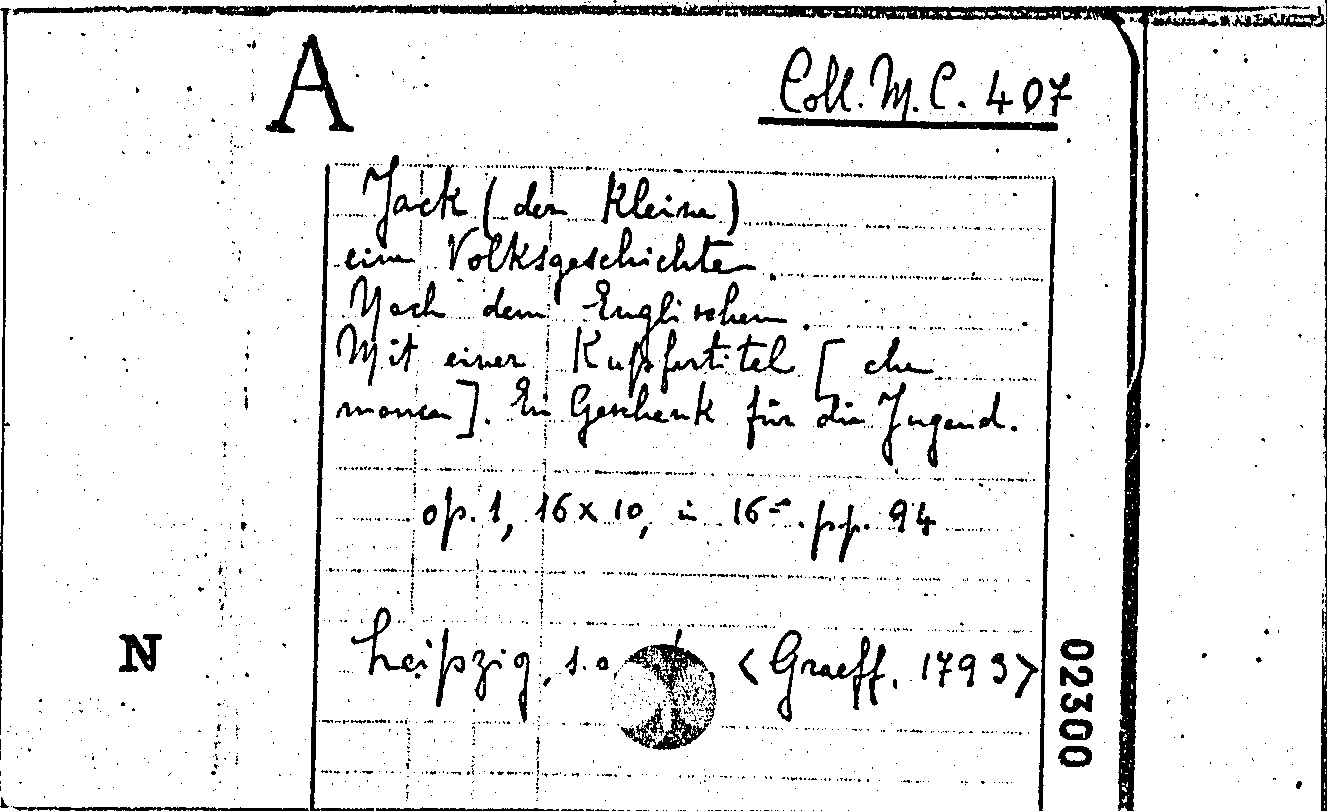 A
Coll. M. C. 407
Jack (der Kleine)
eine Volksgeschichte.
Nach dem Englischen.
Mit einer Kupfertitel [che
manca]. Ein Geschenk für die Jugend.
op. 1, 16 x 10, in 16°. pp. 94
N
Leipzig, s. <Graeff. 1793>
02300